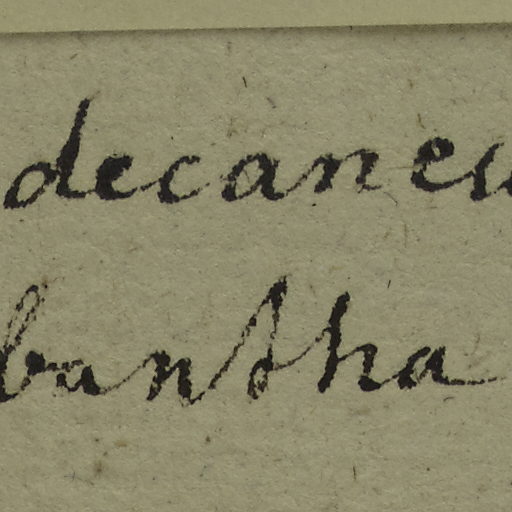 decaneu
bantha